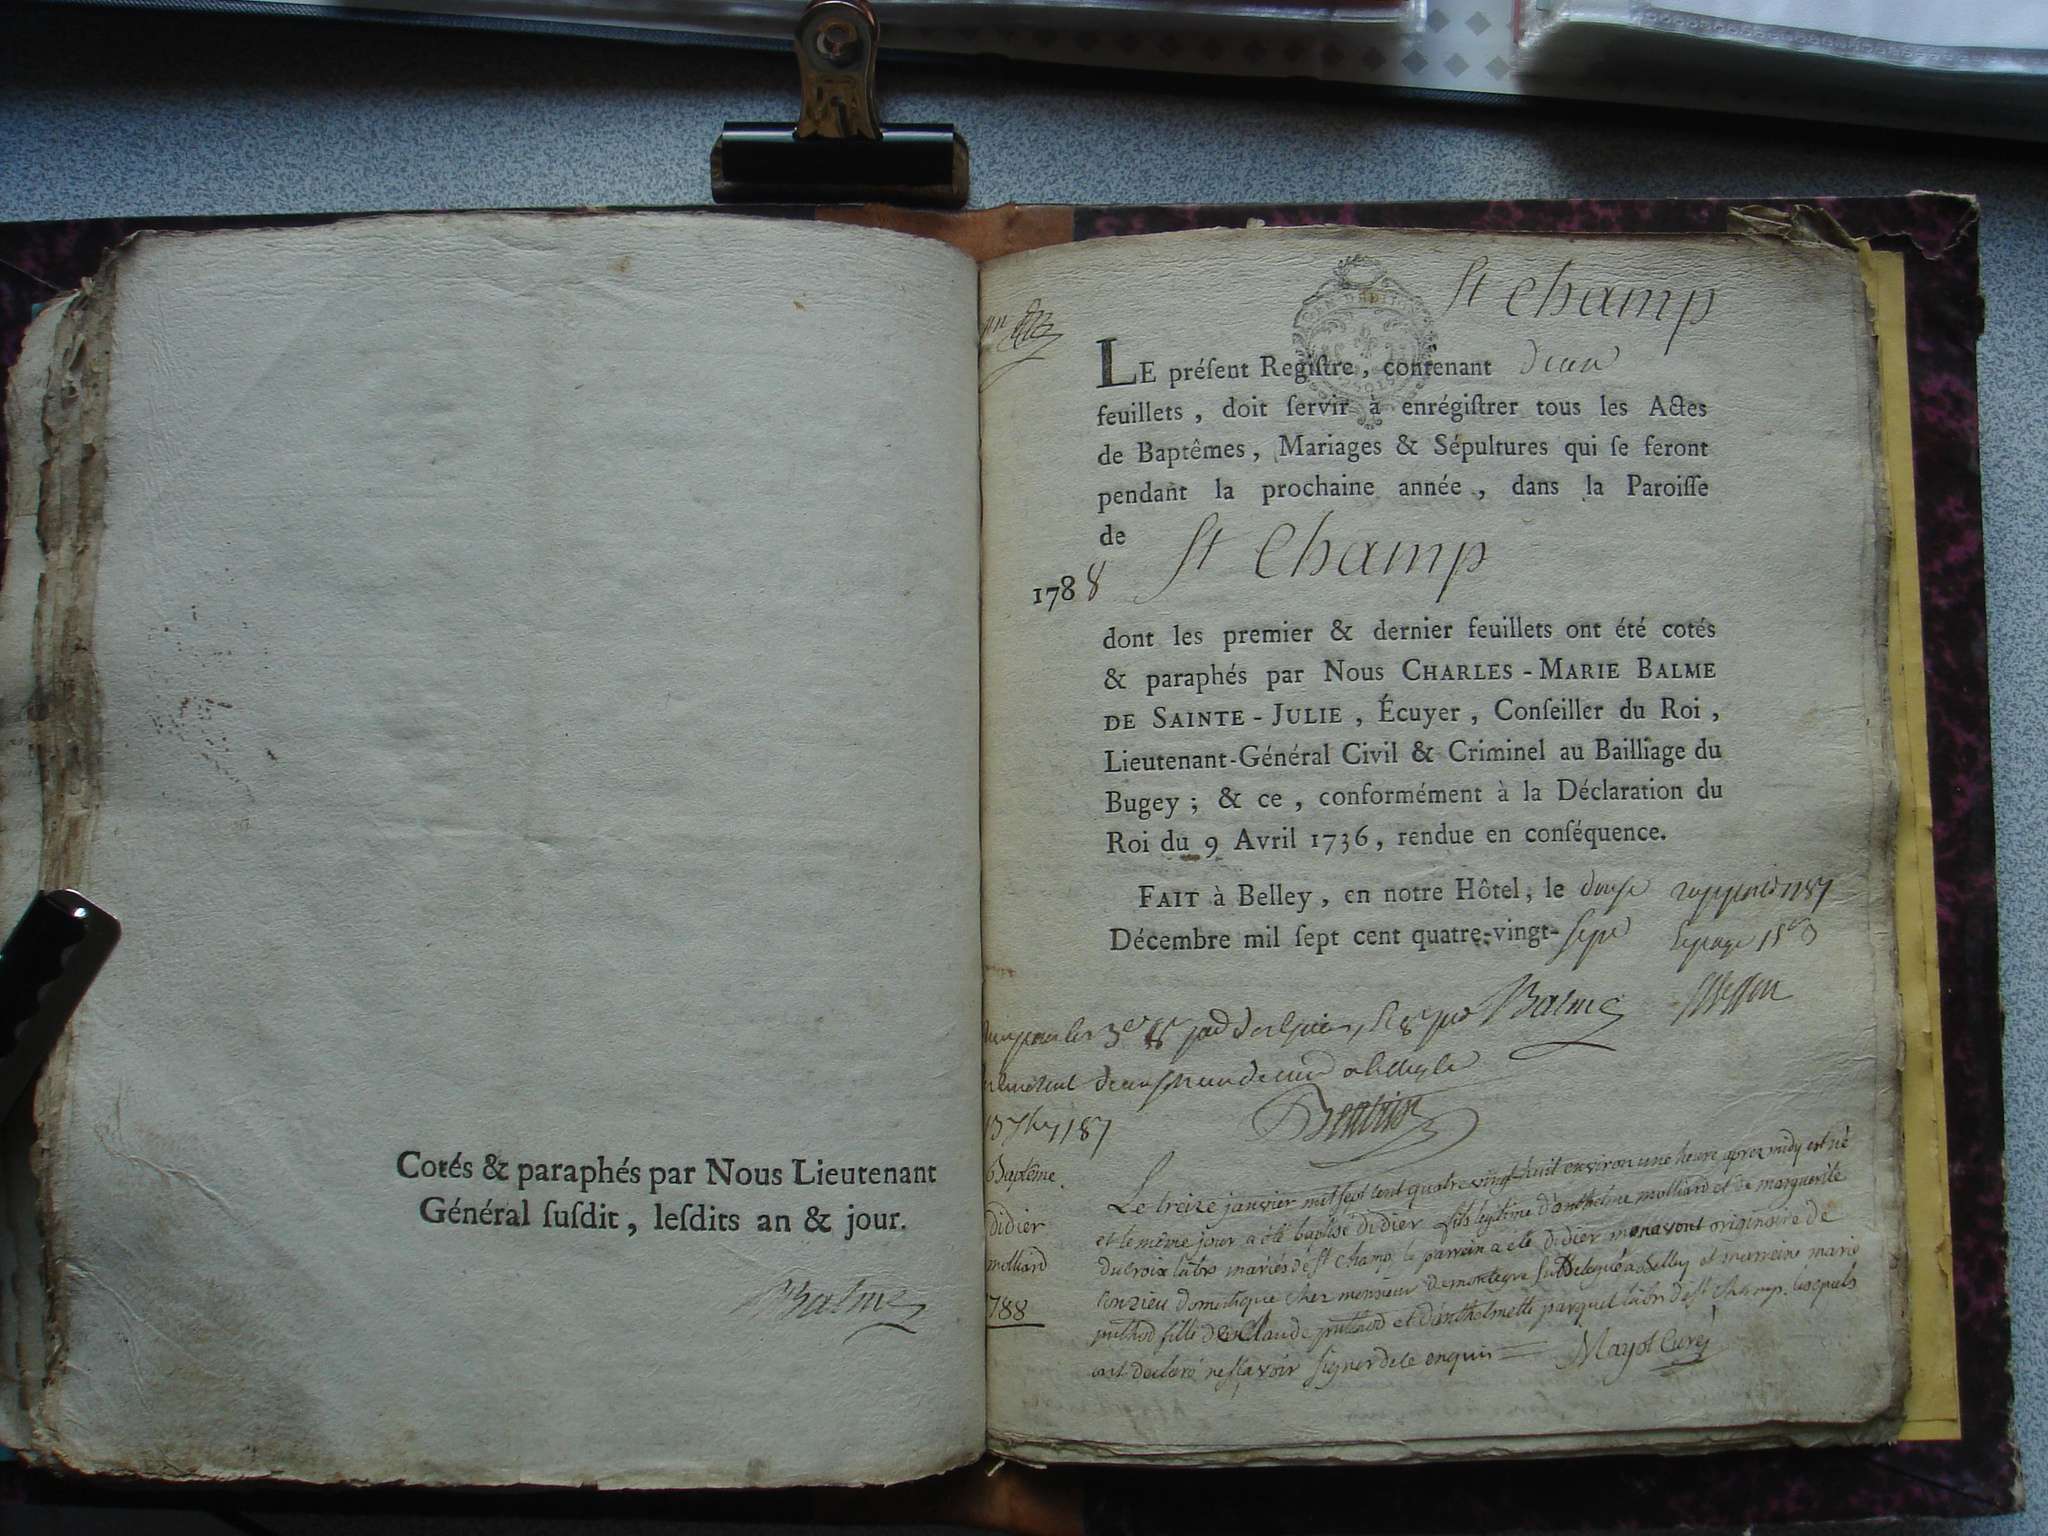 Cotés & paraphés par Nous Lieutenant
Général ſuſdit, leſdits an & jour.
Balme
St Champ
LE préſent Regiſtre, contenant deux
feuillets, doit ſervir à enrégiſtrer tous les Actes
de Baptêmes, Mariages & Sépultures qui ſe feront
pendant la prochaine année, dans la Paroiſſe
de St Champ
1788
dont les premier & dernier feuillets ont été cotés
& paraphés par Nous CHARLES-MARIE BALME
DE SAINTE-JULIE, Écuyer, Conſeiller du Roi,
Lieutenant-Général Civil & Criminel au Bailliage du
Bugey; & ce, conformément à la Déclaration du
Roi du 9 Avril 1736, rendue en conſéquence.
FAIT à Belley, en notre Hôtel, le douse
Décembre mil ſept cent quatre-vingt-ſept
Balme
Baptême
didier
molliard
1788
Le treize janvier mil sept cent quatre vingt huit environ une heure aprez midy est né
et le même jour a été baptisé didier fils legitime d'anthelme molliard et de marguerite
ducroix labrs mariés de St Champ, le parrein a été didier monavont originaire de
conzieu domestique chez monsieur demontegre subdelegué a Belley et marreine marie
puthod fille de Claude puthod et d'anthelmette parquet labrs de St Champ. lesquels
ont declaré ne sçavoir signer de ce enquis = Mayot Curé